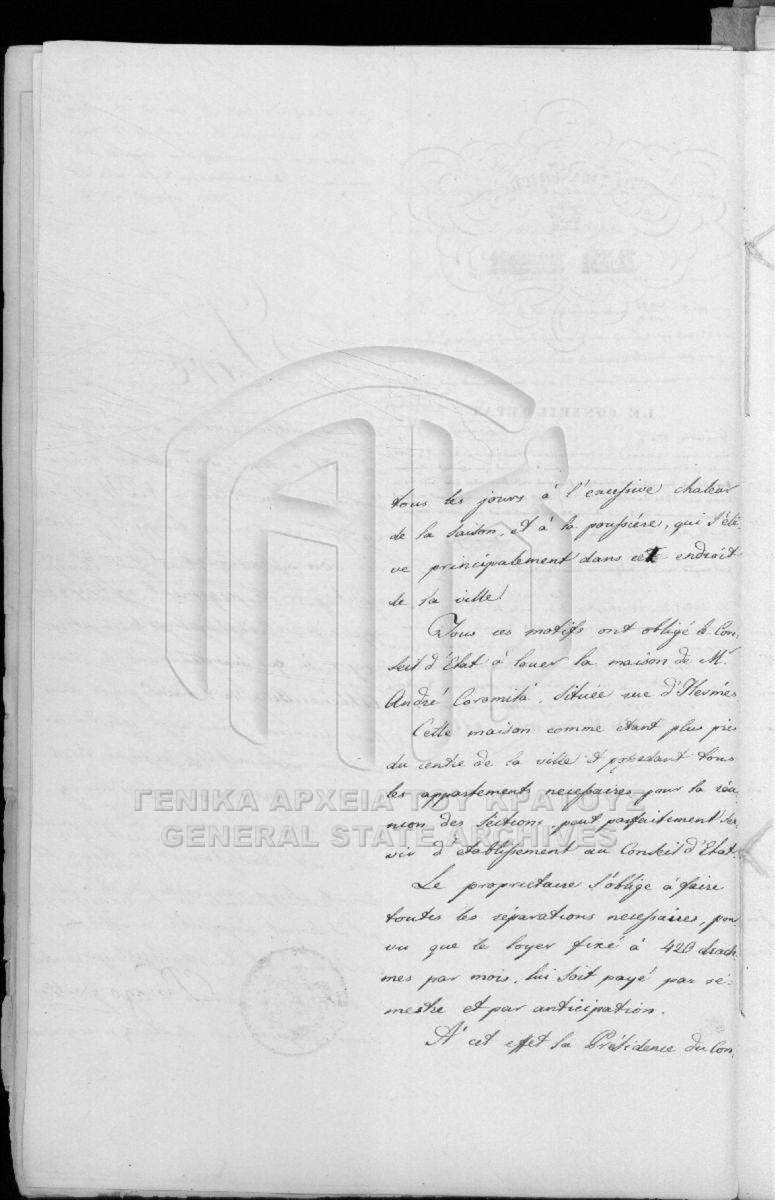 tous les jours à l'excessive chaleur
de la saison, et à la poussière, qui s'élè-
ve principalement dans cet endroit
de la ville!
Tous ces motifs ont obligé le Con-
seil d'Etat à louer la maison de Mr
André Coromilá, située rue d'Hermès
Cette maison comme étant plus près
du centre de la ville et possedant tous
les appartements necessaires pour la réu-
nion des sections peut parfaitement ser-
vir d'établissement au Conseil d'Etat.
Le proprietaire s'oblige à faire
toutes les réparations necessaires, pour
vu que le loyer fixé à 420 drach-
mes par mois, lui soit payé par sé-
mestre et par anticipation.
A' cet effet la Présidence du Con-
ΓΕΝΙΚΑ ΑΡΧΕΙΑ ΤΟΥ ΚΡΑΤΟΥΣ
GENERAL STATE ARCHIVES